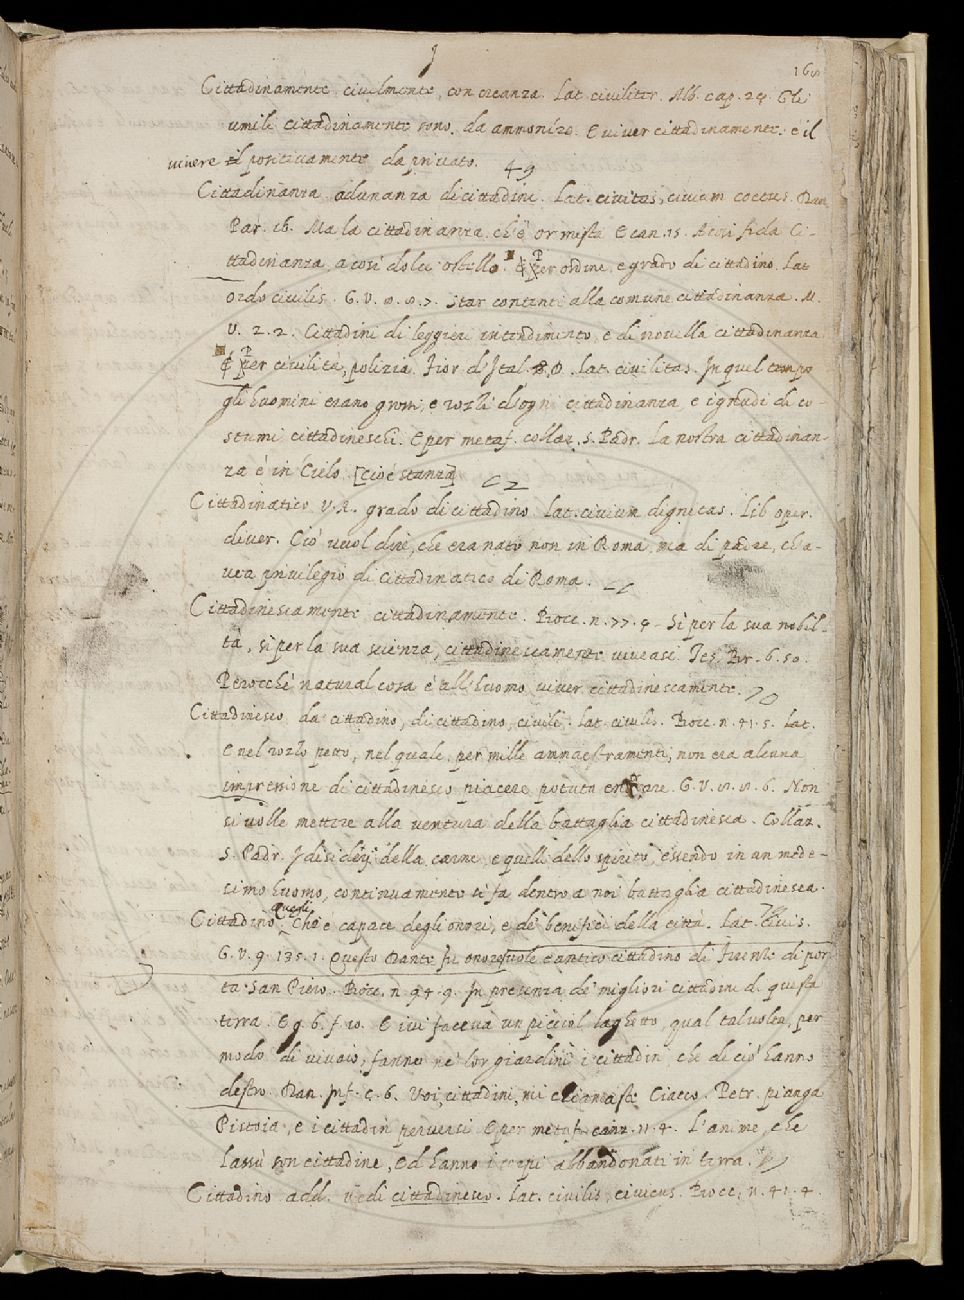 165
Cittadinamente, civilmente, con creanza. Lat. civiliter. Alb. cap. 24. Gli
umili cittadinamente sono da ammonire. E viver cittadinamente è il
vivere positivamente da privato. 49
Cittadinanza adunanza di cittadini. Lat. civitas, civium coetus. Dan.
Par. 16. Ma la cittadinanza, ch'è or mista E can. 15. A così fida Ci-
ttadinanza, a così dolce ostello. ¶ Per ordine, e grado di cittadino. Lat.
ordo civilis. G. V. 8. 8. 7. star contenti alla comune cittadinanza. M.
V. 2. 2. Cittadini di leggieri intendimento, e di novella cittadinanza
¶ Per civiltà, polizia. Fior d'Ital. D. Lat. civilitas. In quel tempo
gli huomini erano grossi, e rozzi d'ogni cittadinanza e i gradi di co-
stumi cittadineschi. E per metaf. collaz. s. Padr. La nostra cittadinan-
za è in Cielo [cioè stanza]
Cittadinatico V. A. grado di cittadino Lat. civium dignitas. Lib. oper.
diver. Ciò vuol dire, che era nato non in Roma, ma di padre, ch'a-
vea privilegio di cittadinatico di Roma.
Cittadinescamente cittadinamente. Bocc. n. 77. 4. Sì per la sua nobil-
tà, sì per la sua scienza, cittadinescamente viveasi. Tes. Br. 6. 50.
Perocchè natural cosa è all'huomo viver cittadinescamente. 70
Cittadinesco da cittadino, di cittadino, civile. Lat. civilis. Bocc. n. 41. 5. Lat.
E nel rozzo petto, nel quale, per mille ammaestramenti, non era alcuna
impressione di cittadinesco piacere potuta entrare. G. V. 8. 8. 6. Non
si volle mettere alla ventura della battaglia cittadinesca. Collaz.
S. Padr. I disiderij della carne e quelli dello spirito, essendo in un mede-
simo huomo, continuamente si fa dentro a noi battaglia cittadinesca.
Cittadino, Quegli Che è capace degli onori, e de' benifici della città. Lat. civis.
G. V. 9. 135. 1. Questo Dante fu onorevole e antico cittadino di Firenze di por-
ta San Piero. Bocc. n. 94. 9. In presenza de' migliori cittadini di questa
terra. E g. 6. f. 10. E ivi faceva un piccol laghetto, qual talvolta, per
modo di vivaio, fanno ne' lor giardini i cittadin, che di ciò hanno
destro. Dan. Inf. c. 6. Voi, cittadini, mi chiamaste Ciacco. Petr. pianga
Pistoia, e i cittadin perversi E per metaf. canz. n. 4. L'anime, che
lassù son cittadine, Ed hanno i corpi abbandonati in terra.
Cittadino add. vedi cittadinesco. Lat. civilis, civicus. Bocc. n. 41. 4.